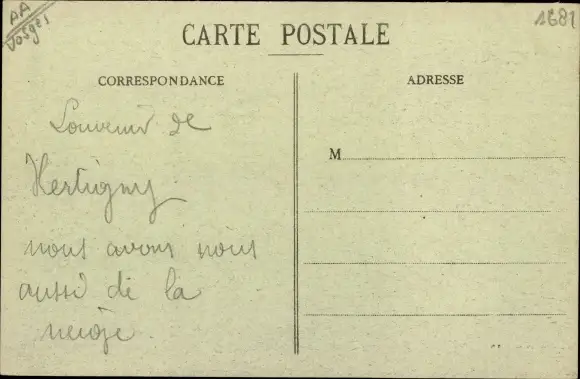 AA
Vosges
1681
CARTE POSTALE
CORRESPONDANCE
ADRESSE
Souvenir de
Hertigny
nous avons nous
aussi de la
neige.
M